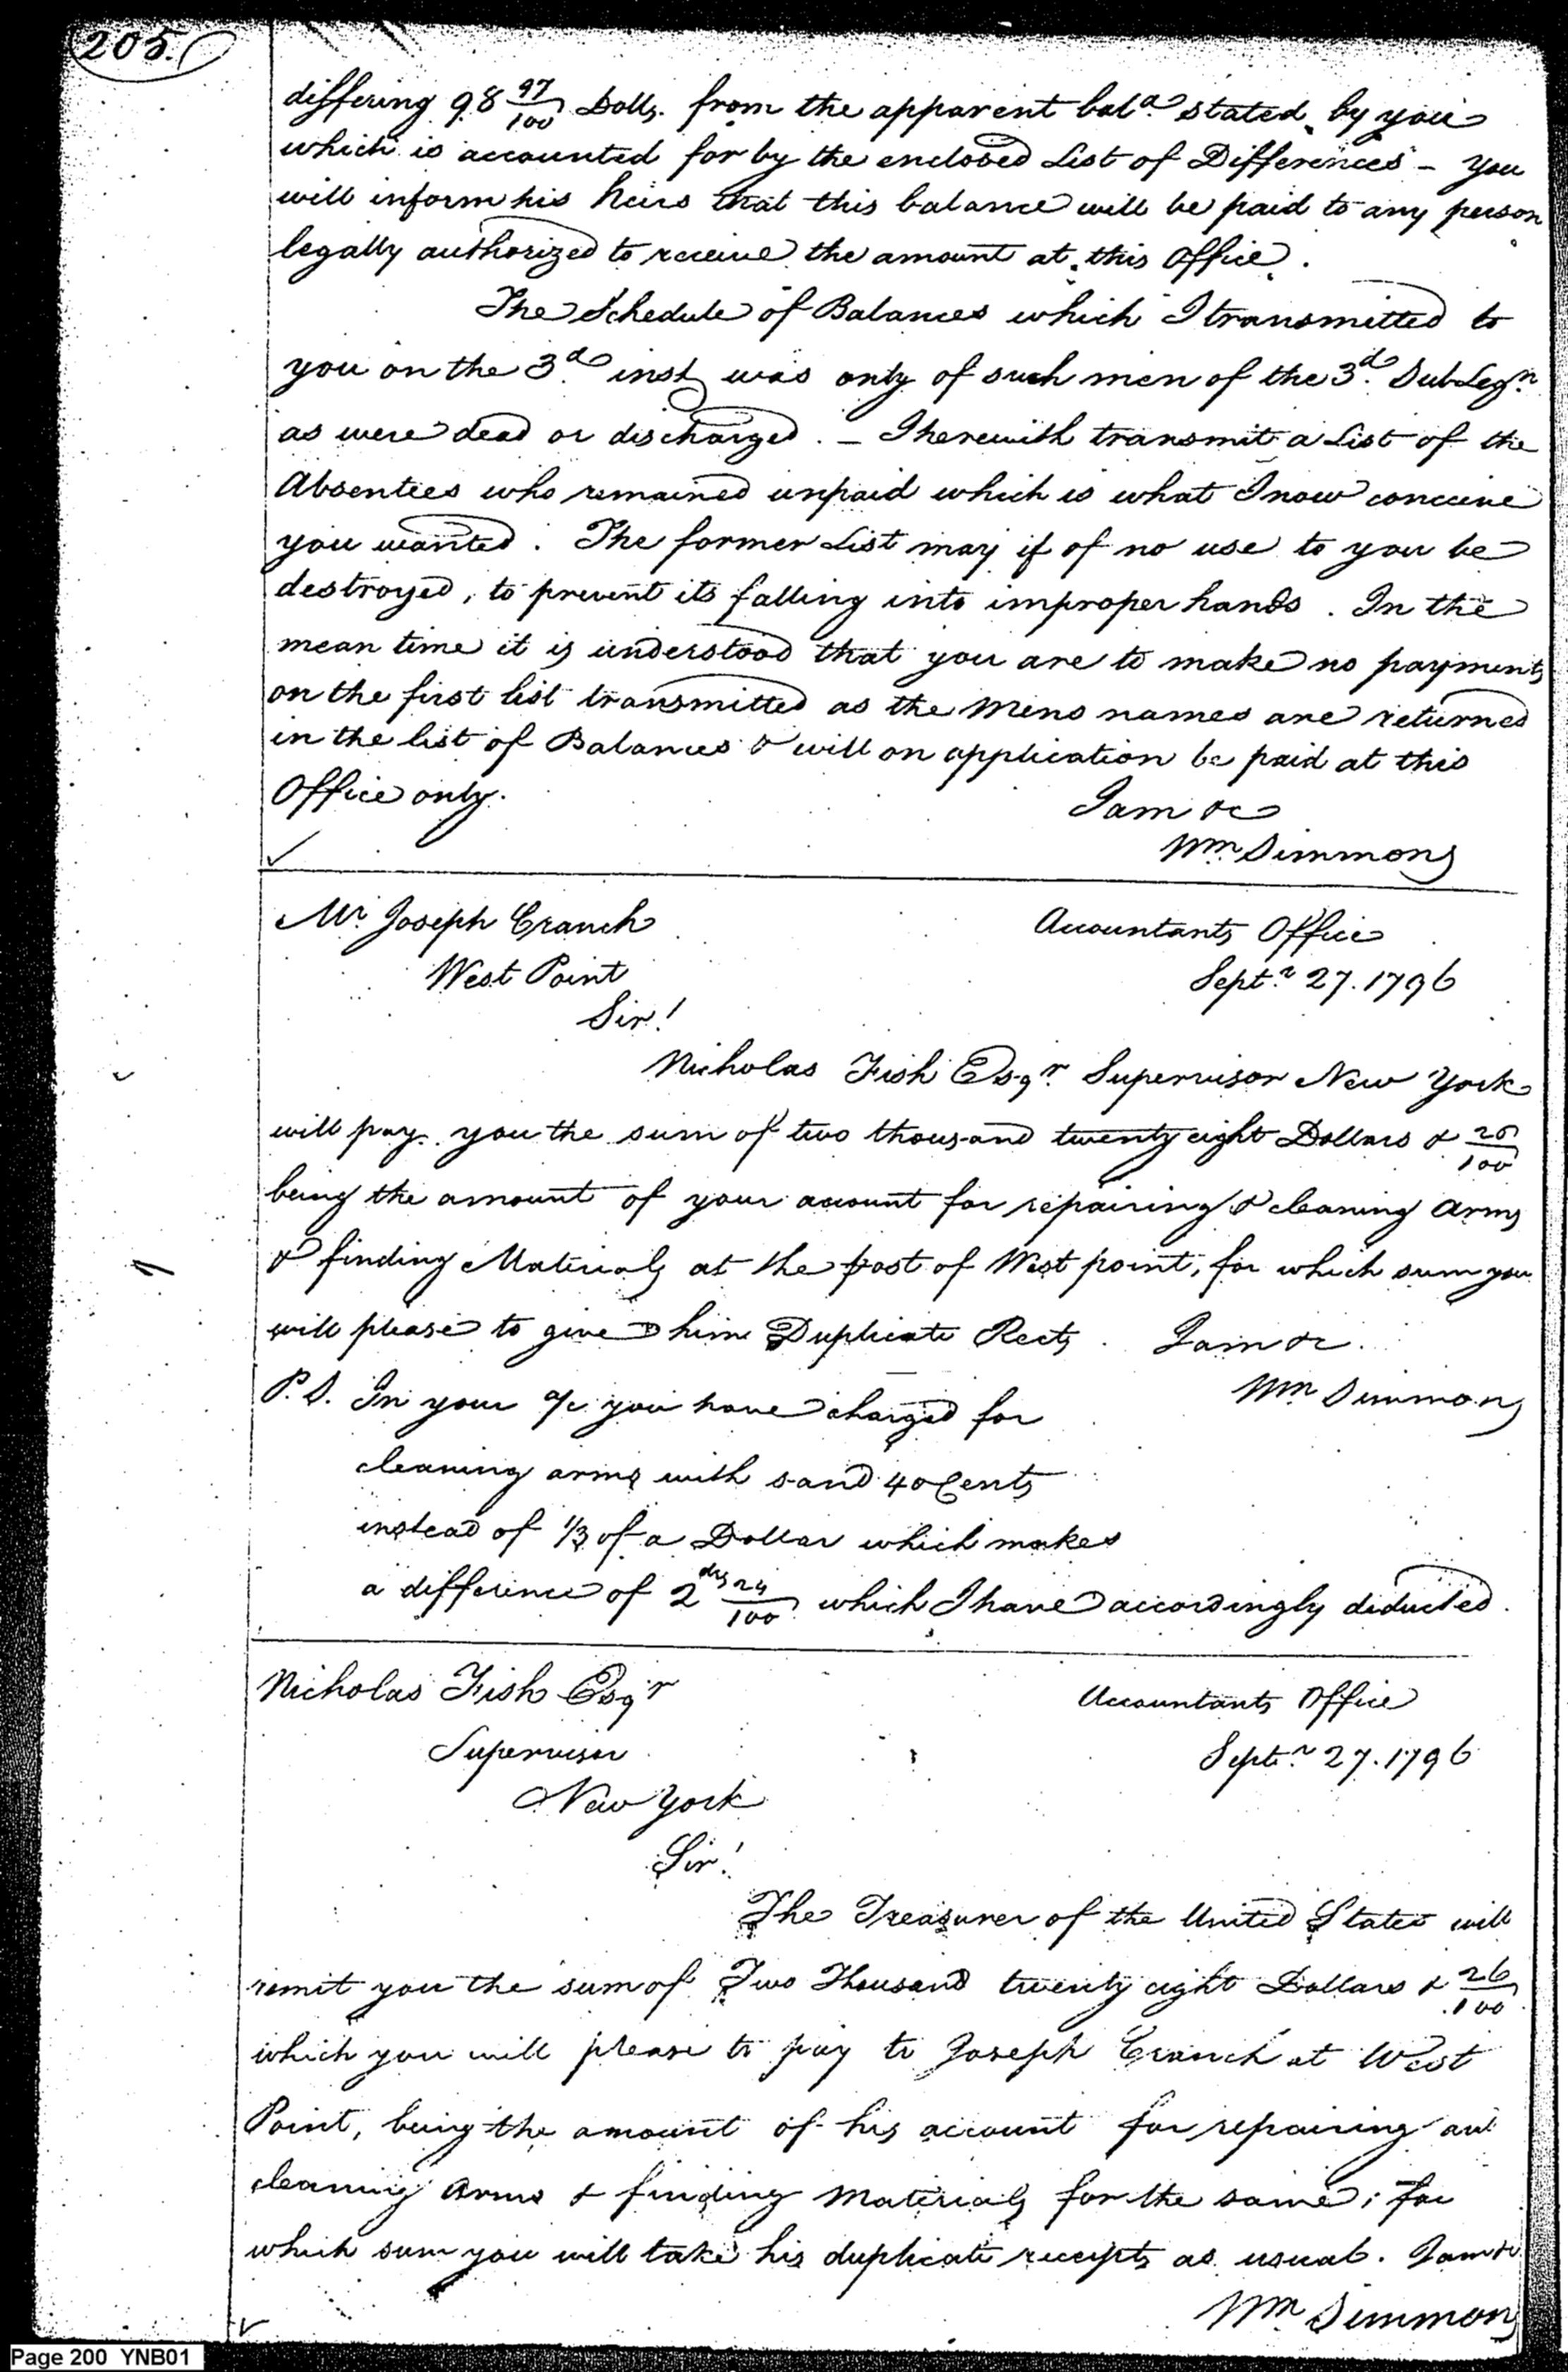 205.
differing 98 97/100 Dolls. from the apparent bala. stated by you
which is accounted for by the enclosed List of Differences - you
will inform his heirs that this balance will be paid to any person
legally authorized to receive the amount at this Office.
The Schedule of Balances which I transmitted to
you on the 3d. inst was only of such men of the 3d. Sub Legn.
as were dead or discharged. - I herewith transmit a List of the
Absentees who remained unpaid which is what I now conceive
you wanted. The former List may if of no use to you be
destroyed, to prevent its falling into improper hands. In the
mean time it is understood that you are to make no payments
on the first list transmitted as the Mens names are returned
in the list of Balances & will on application be paid at this
Office only.
I am &c
Wm. Simmons
Mr. Joseph Cranch
Accountants Office
West Point
Septr. 27. 1796
Sir!
Nicholas Fish Esqr. Supervisor New York
will pay you the sum of two thousand twenty eight Dollars & 26/100
being the amount of your account for repairing & cleaning Arms
& finding Materials at the post of West point, for which sum you
will please to give him Duplicate Rects. I am &c.
Wm Simmons
P.S. In your a/c you have charged for
cleaning arms with sand 40 Cents
instead of 1/3 of a Dollar which makes
a difference of 2 dls 24/100 which I have accordingly deducted.
Nicholas Fish Esqr
Accountants Office
Supervisor
Septr. 27. 1796
New York
Sir!
The Treasurer of the United States will
remit you the sum of Two Thousand twenty eight Dollars & 26/100
which you will please to pay to Joseph Cranch at West
Point, being the amount of his account for repairing and
cleaning Arms & finding Materials for the same; for
which sum you will take his duplicate receipts as usual. I am &c
Wm Simmons
Page 200 YNB01